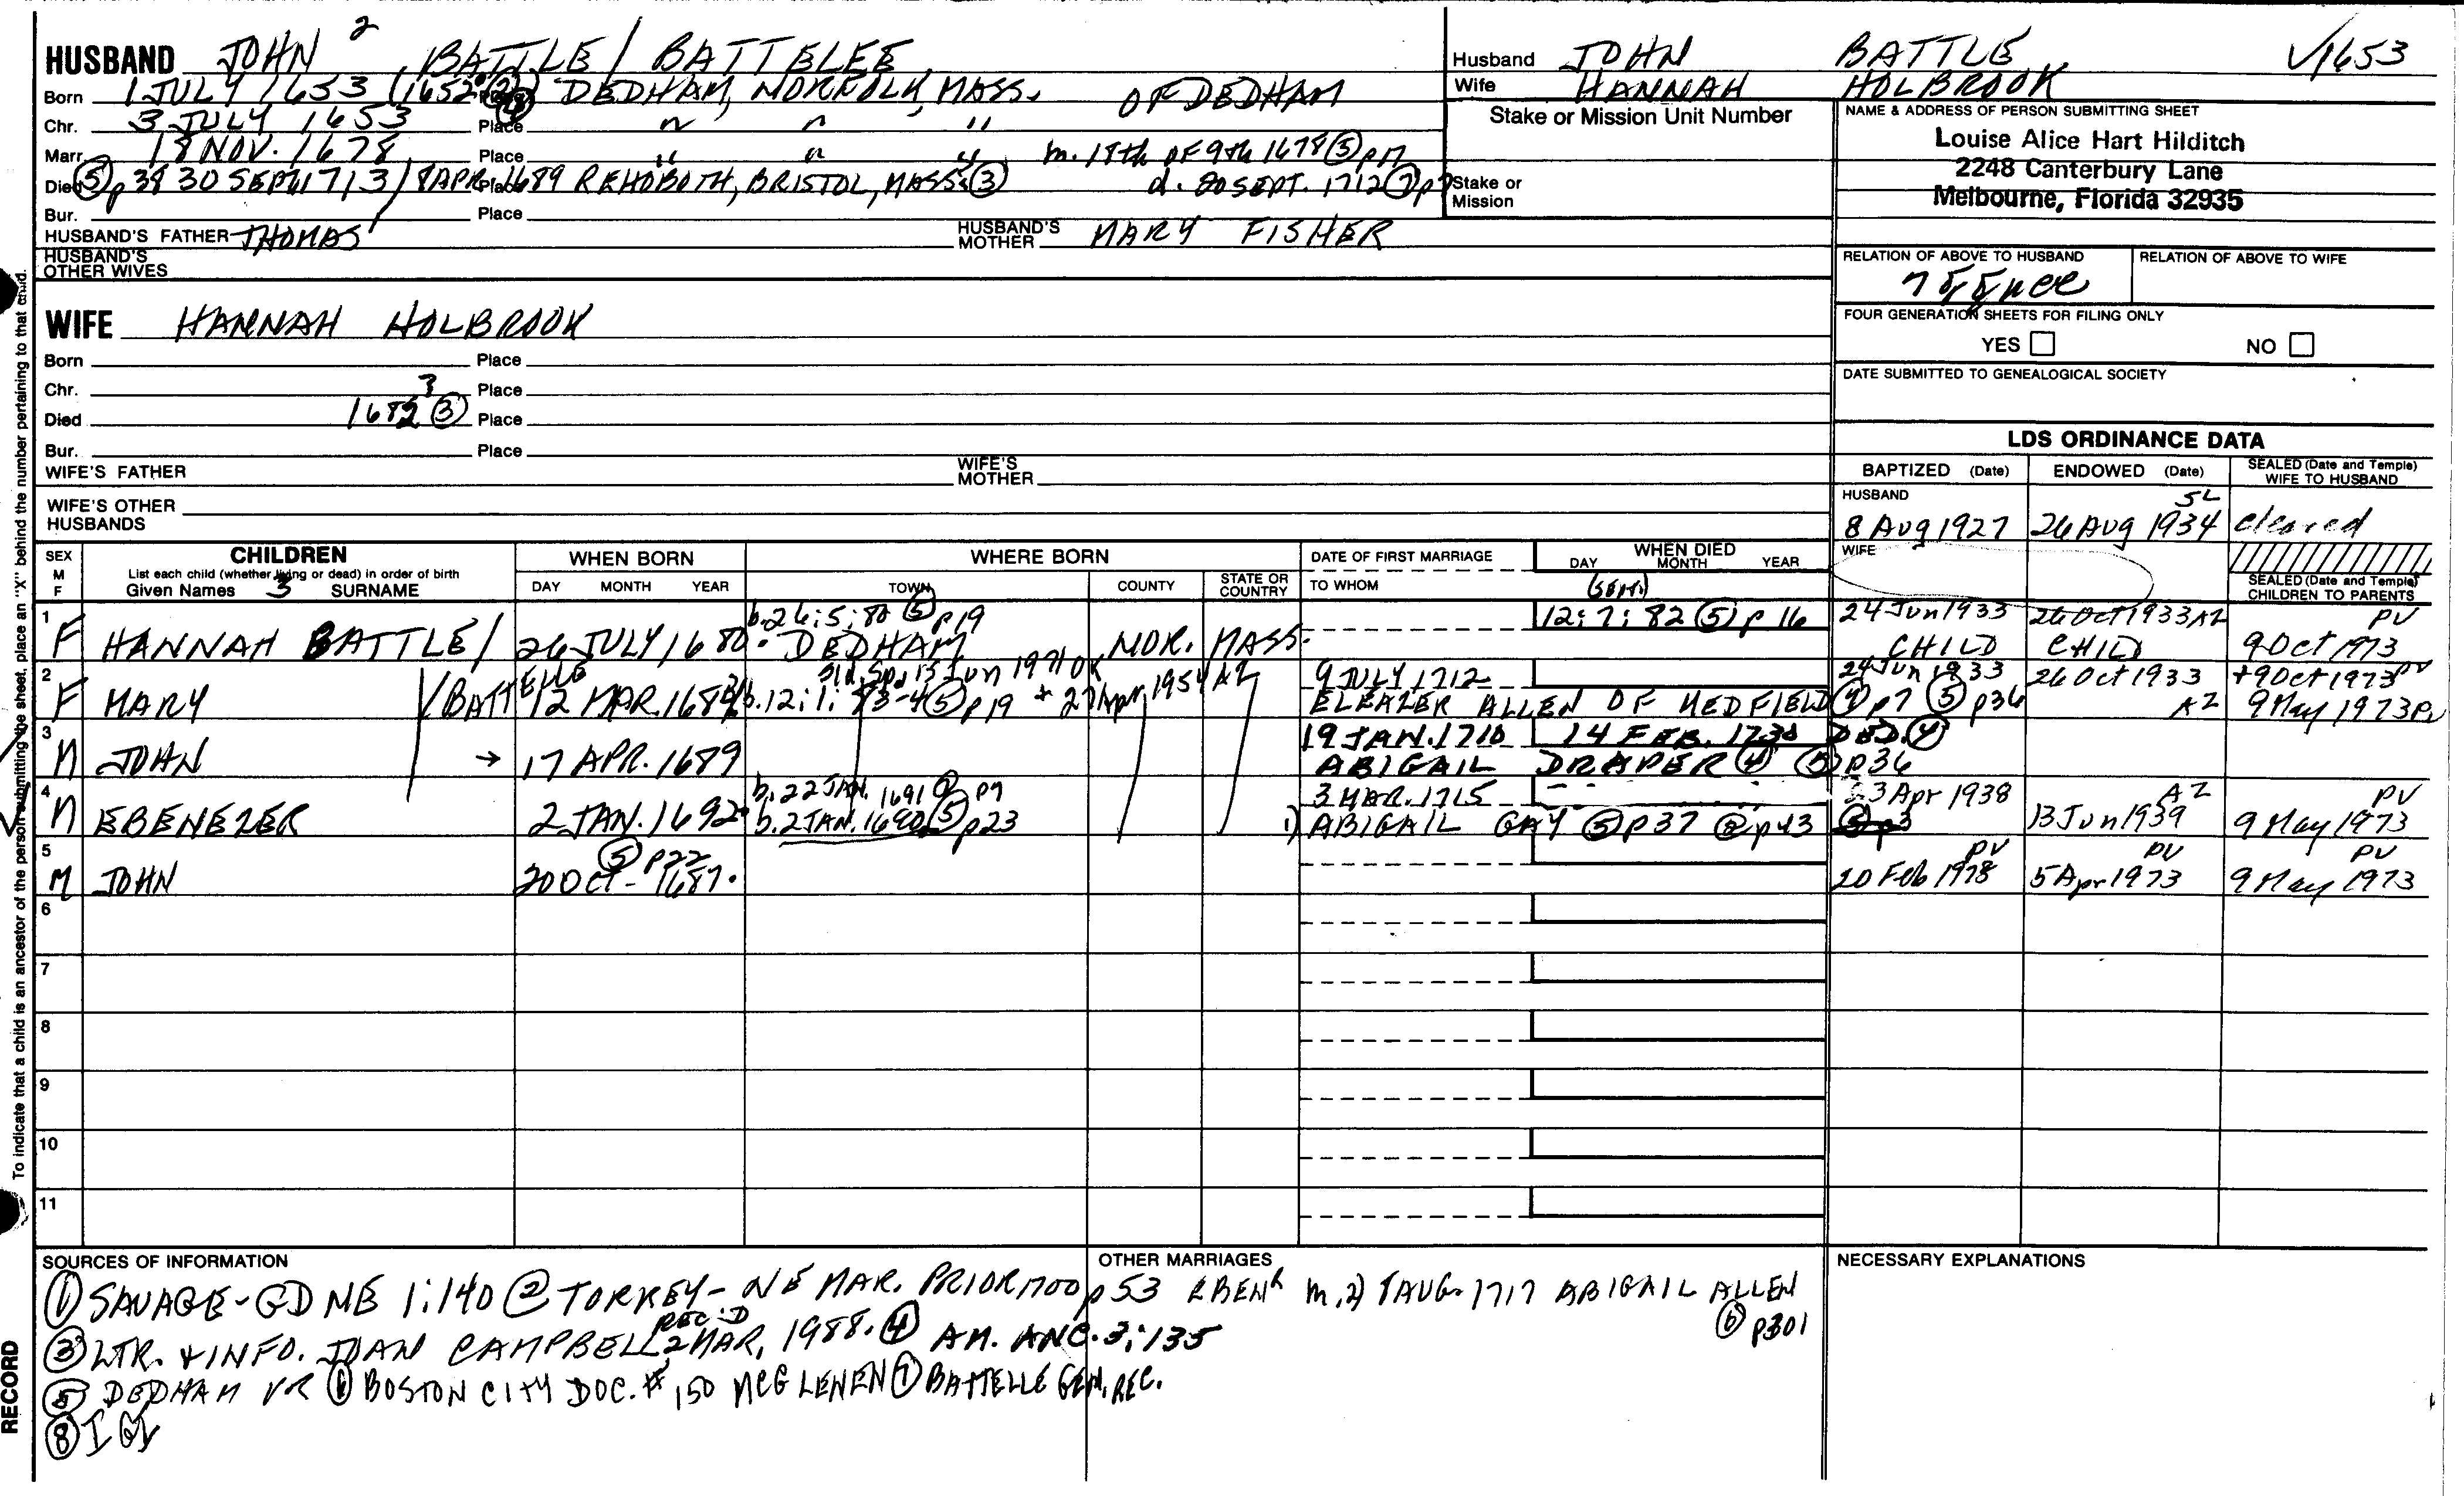 HUSBAND JOHN 2 BATTLE / BATTELEE
Born 1 JULY 1653 (1652 DEDHAM, NORFOLK, MASS. OF DEDHAM
Chr. 3 JULY 1653 Place " " "
Marr. 18 NOV. 1678 Place " " " m. 18th OF 9th 1678 (5) p17
Died (5) p 38 30 SEPT. 1713 / 8 APR. 1689 Place REHOBOTH, BRISTOL, MASS. (3) d. 30 SEPT. 1712 (7) p
Bur. Place
HUSBAND'S FATHER THOMAS HUSBAND'S MOTHER MARY FISHER
HUSBAND'S OTHER WIVES
Husband JOHN BATTLE V1653
Wife HANNAH HOLBROOK
Stake or Mission Unit Number
Stake or Mission
NAME & ADDRESS OF PERSON SUBMITTING SHEET
Louise Alice Hart Hilditch
2248 Canterbury Lane
Melbourne, Florida 32935
RELATION OF ABOVE TO HUSBAND RELATION OF ABOVE TO WIFE
FOUR GENERATION SHEETS FOR FILING ONLY
YES NO
DATE SUBMITTED TO GENEALOGICAL SOCIETY
WIFE HANNAH HOLBROOK
Born Place
Chr. Place
Died 1682 3 (3) Place
Bur. Place
WIFE'S FATHER WIFE'S MOTHER
WIFE'S OTHER HUSBANDS
LDS ORDINANCE DATA
BAPTIZED (Date) ENDOWED (Date) SEALED (Date and Temple) WIFE TO HUSBAND
HUSBAND 8 Aug 1927 26 Aug 1934 SL cleared
WIFE
SEALED (Date and Temple) CHILDREN TO PARENTS
SEX M F
CHILDREN
List each child (whether living or dead) in order of birth
Given Names 3 SURNAME
WHEN BORN
DAY MONTH YEAR
WHERE BORN
TOWN COUNTY STATE OR COUNTRY
DATE OF FIRST MARRIAGE
TO WHOM
WHEN DIED
DAY MONTH YEAR
1 b. 26:5:80 (5) p19 12:7:82 (5) p 16 24 Jun 1933 26 Oct 1933 AZ PV
F HANNAH BATTLE / 26 JULY 1680. DEDHAM NOR. MASS. CHILD CHILD 9 Oct 1973
2 BATTELLE 15 Jun 1971 OK 9 JULY 1712 24 Jun 1933 26 Oct 1933 + 9 Oct 1973 PV
F MARY 12 MAR. 168 b. 12:1:83-4 (5) p19 * 27 Apr 1954 AZ ELEAZER ALLEN OF MEDFIELD (4) p7 (5) p36 AZ 9 May 1973 PV
3 19 JAN. 1710 14 FEB. 1730 DED. (4)
M JOHN → 17 APR. 1689 ABIGAIL DRAPER (4) (5) p36
4 b. 22 JAN. 1691 p7 3 MAR. 1715 23 Apr 1938 AZ PV
M EBENEZER 2 JAN. 1692. b. 2 JAN. 1690 (5) p23 1) ABIGAIL GAY (5) p37 p43 13 Jun 1939 9 May 1973
5 (5) p22 PV PV PV
M JOHN 20 Oct - 1687. 20 Feb 1978 5 Apr 1973 9 May 1973
6
7
8
9
10
11
To indicate that a child is an ancestor of the person submitting the sheet, place an "X" behind the number pertaining to that child.
RECORD
SOURCES OF INFORMATION
(1) SAVAGE - GD NE 1:140 (2) TORREY - NE MAR. PRIOR 1700 p 53
(3) LTR. + INFO. JOAN CAMPBELL REC'D 2 MAR. 1988. (4) AM. ANC. 3:135
(5) DEDHAM VR (6) BOSTON CITY DOC. # 150 MCGLENEN (7) BATTELLE GEN. REC.
(8) IGI
OTHER MARRIAGES
EBENR m. 2) 1 AUG. 1717 ABIGAIL ALLEN
(6) p301
NECESSARY EXPLANATIONS